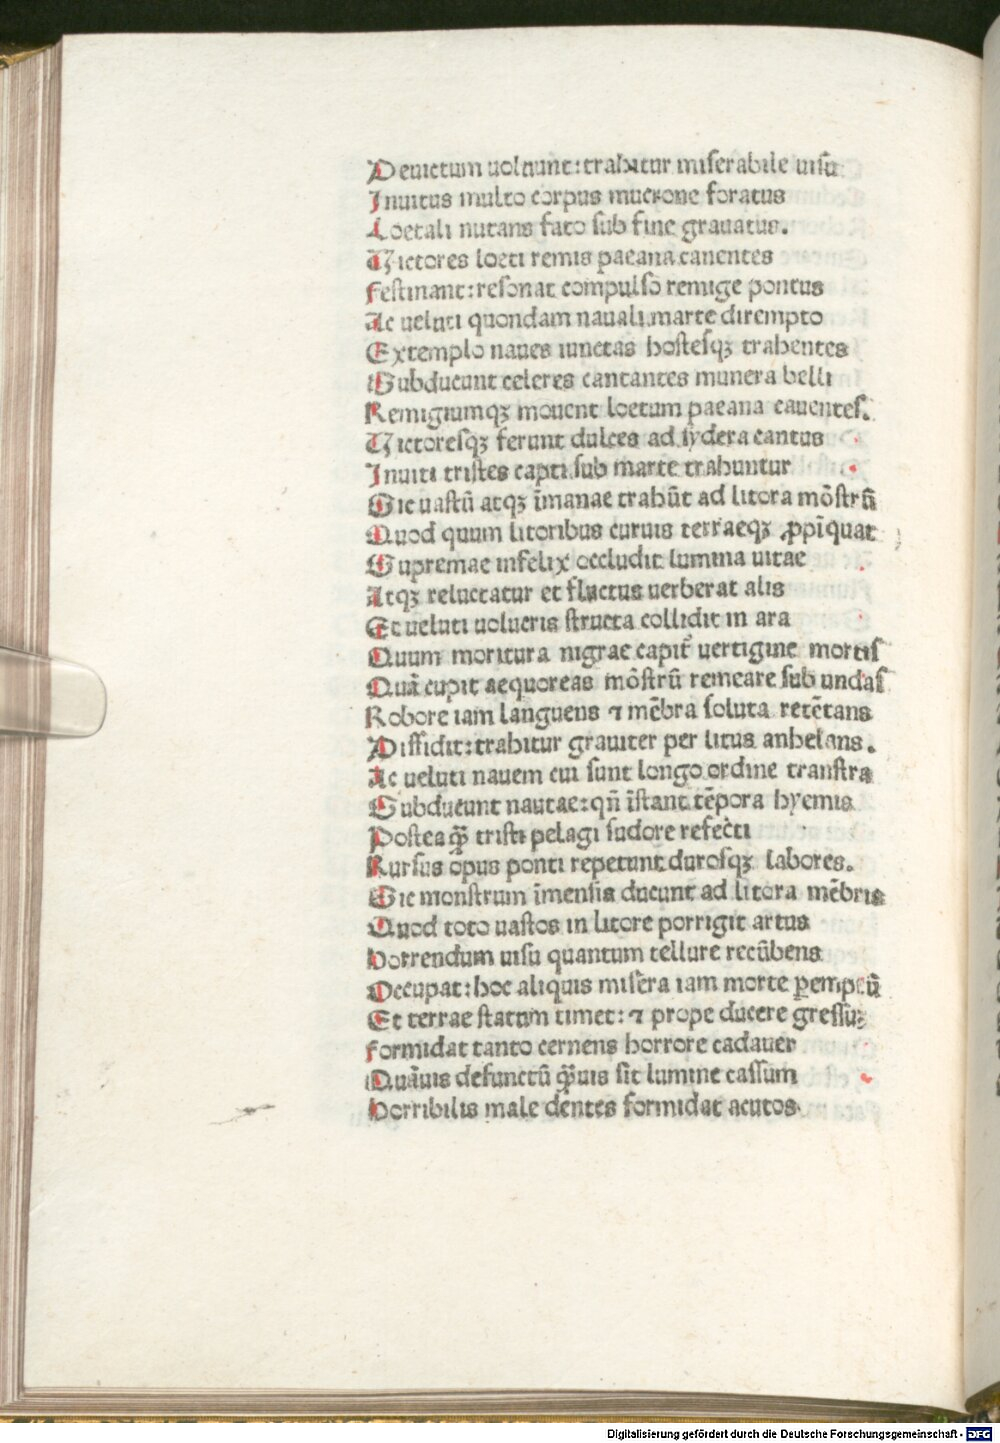 Deuictum uoluunt: trahitur miserabile uisu
Inuitus multo corpus mucrone foratus
Loetali nutans fato sub fine grauatus.
Victores loeti remis paeana canentes
Festinant: resonat compulso remige pontus
Ac ueluti quondam nauali marte dirempto
Extemplo naues iunctas hostesqꝫ trahentes
Subducunt celeres cantantes munera belli
Remigiumqꝫ mouent loetum paeana cauentes.
Victoresqꝫ ferunt dulces ad sydera cantus
Inuiti tristes capti sub marte trahuntur
Sic uastū atqꝫ īmanae trahūt ad litora mōstrū
Quod quum litoribus curuis terraeqꝫ ꝓpīquat
Supremae infelix occludit lumina uitae
Atqꝫ reluctatur et fluctus uerberat alis
Et ueluti uolucris structa collidit in ara
Quum moritura nigrae capit᷑ uertigine mortis
Quā cupit aequoreas mōstrū remeare sub undas
Robore iam languens ⁊ mēbra soluta retētans
Diffidit: trahitur grauiter per litus anhelans.
Ac ueluti nauem cui sunt longo ordine transtra
Subducunt nautae: qn̄ īstant tēpora hyemis
Posteaꝙ̄ tristi pelagi sudore refecti
Rursus opus ponti repetunt durosqꝫ labores.
Sic monstrum īmensis ducunt ad litora mēbris
Quod toto uastos in litore porrigit artus
Horrendum uisu quantum tellure recūbens
Occupat: hoc aliquis misera iam morte ꝑemptū
Et terrae stratum timet: ⁊ prope ducere gressuꝫ
Formidat tanto cernens horrore cadauer
Quāuis defunctū ꝙ̄uis sit lumine cassum
Horribilis male dentes formidat acutos
Digitalisierung gefördert durch die Deutsche Forschungsgemeinschaft - DFG